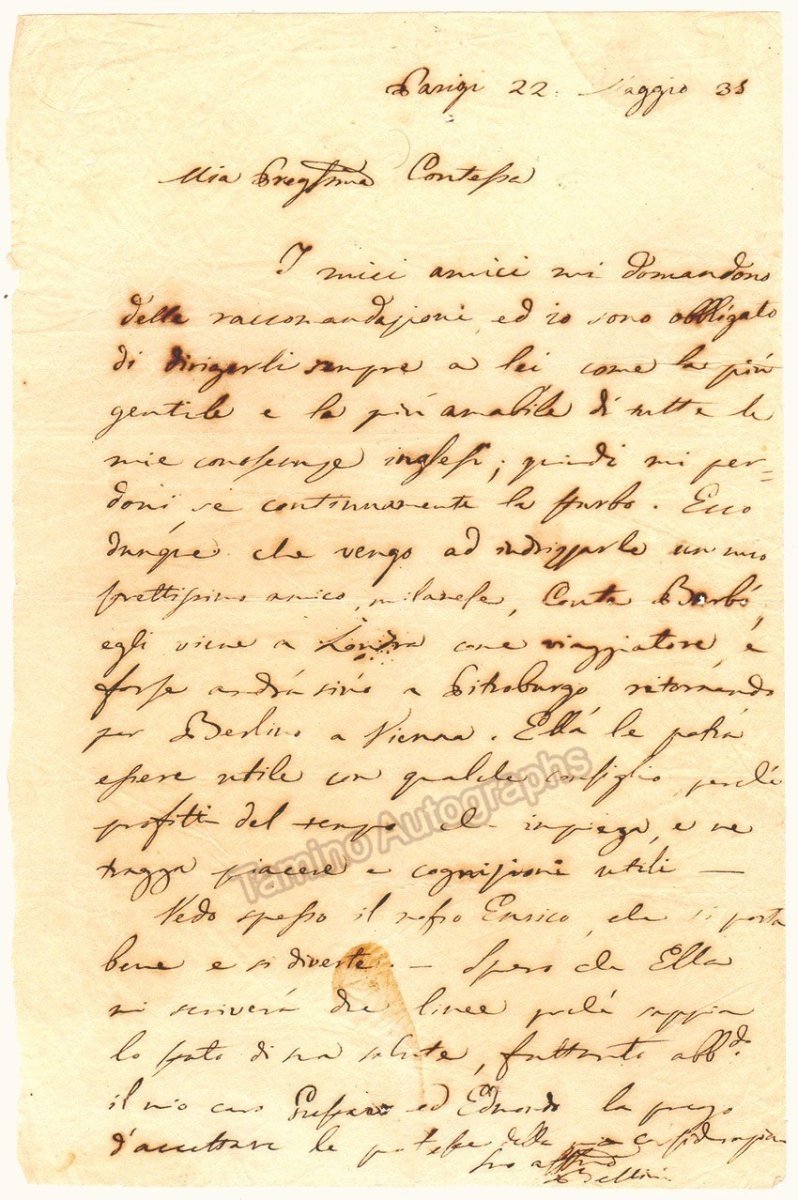 Parigi 22. Maggio 35
Mia Pregssma Contessa
I miei amici mi domandono
delle raccomandazioni, ed io sono obbligato
di dirigerli sempre a lei come la più
gentile e la più amabile di tutte le
mie conoscenze inglesi; quindi mi per=
doni se continuamente la sturbo. Ecco
dunque che vengo ad indrizzarle un mio
strettissimo amico, milanese, Conte Barbó,
egli viene a Londra come viaggiatore, e
forse andrà sino a Pitroburgo ritornando
per Berlino a Vienna. Ella le potrà
essere utile con qualche consiglio, perché
profitti del tempo che impiega, e ne
tragga piacere e cognizioni utili —
Vedo spesso il nostro Enrico, che si porta
bene e si diverte. — Spero che Ella
mi scriverà due linee perché sappia
lo stato di sua salute, frattanto abb.do
il mio caro ed Eduardo la prego
d'accettare le proteste della mia considerazione
Suo affmo
Bellini
Tamino Autographs